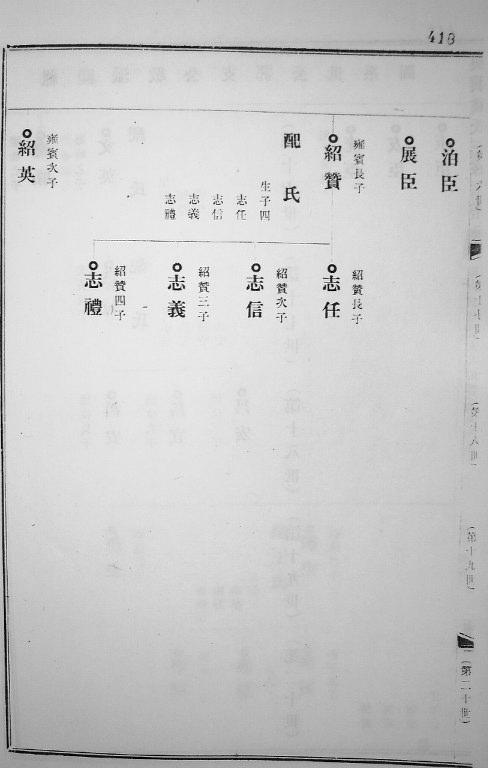 418
泊臣
展臣
雍賓長子
紹贊
配氏
生子四
志任
志信
志義
志禮
雍賓次子
紹英
紹贊長子
志任
紹贊次子
志信
紹贊三子
志義
紹贊四子
志禮
(第十八世)
(第十九世)
(第二十世)